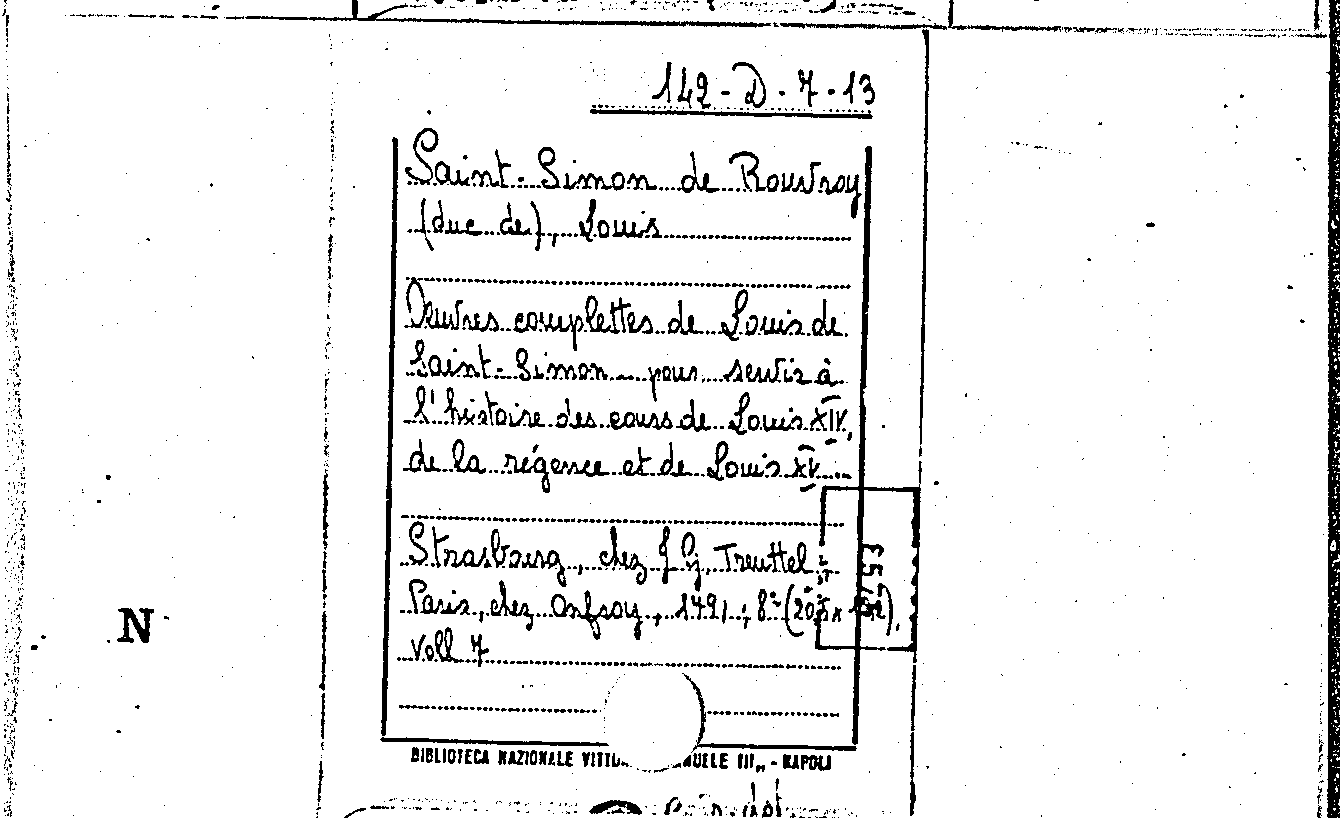 142-D-7-13
Saint-Simon de Rouvroy
(duc de), Louis
Oeuvres complettes de Louis de
Saint-Simon pour servir à
l'histoire des cours de Louis XIV,
de la régence et de Louis XV...
Strasbourg, chez J. G. Treuttel;
Paris, chez Onfroy, 1791; 8º (20,5x
Voll 7
N
BIBLIOTECA NAZIONALE III,, - NAPOLI